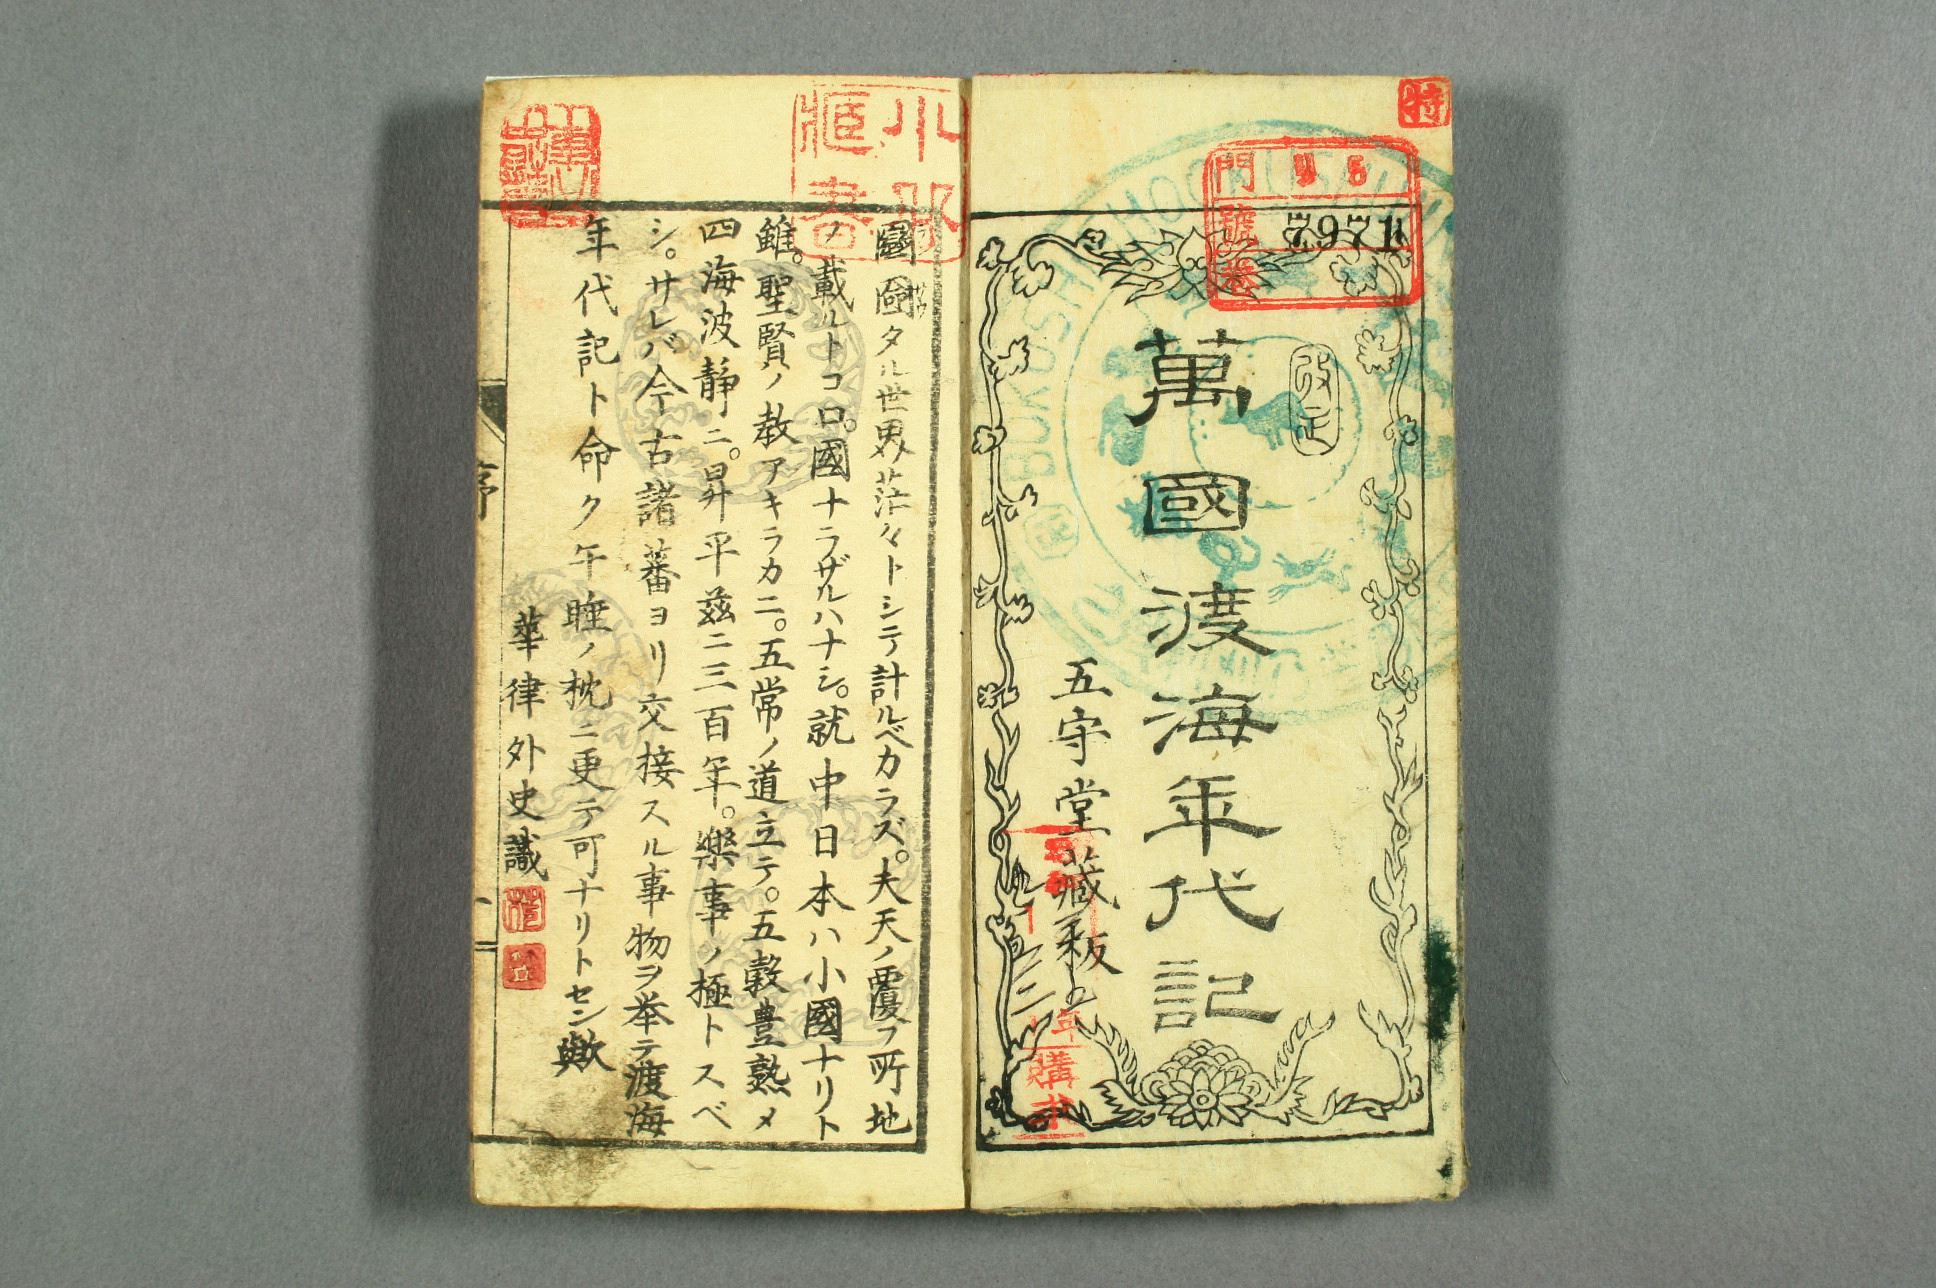 特
門
號
卷
7971
改正
萬國渡海年代記
五守堂藏板
購求
圖國タル世界茫々トシテ計ルベカラズ。夫天ノ覆フ所地
ノ載ルトコロ。國ナラザルハナシ。就中日本ハ小國ナリト
雖。聖賢ノ教アキラカニ。五常ノ道立テ。五穀豊熟メ
四海波静ニ。昇平茲ニ三百年。樂事ノ極トスベ
シ。サレバ今古諸蕃ヨリ交接スル事物ヲ挙テ渡海
年代記ト命ク午睡ノ枕ニ更テ可ナリトセン歟
華律外史識
序